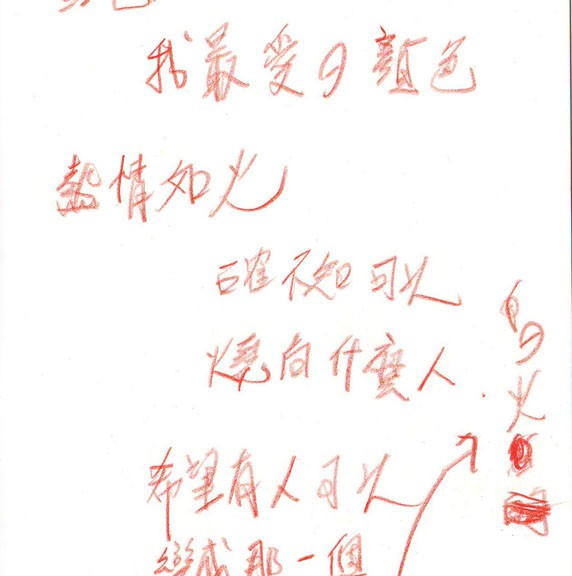 紅色
我最愛の顏色
熱情如火
確不知可以
燒向什麼人
希望有人可以
變成那一個
の火